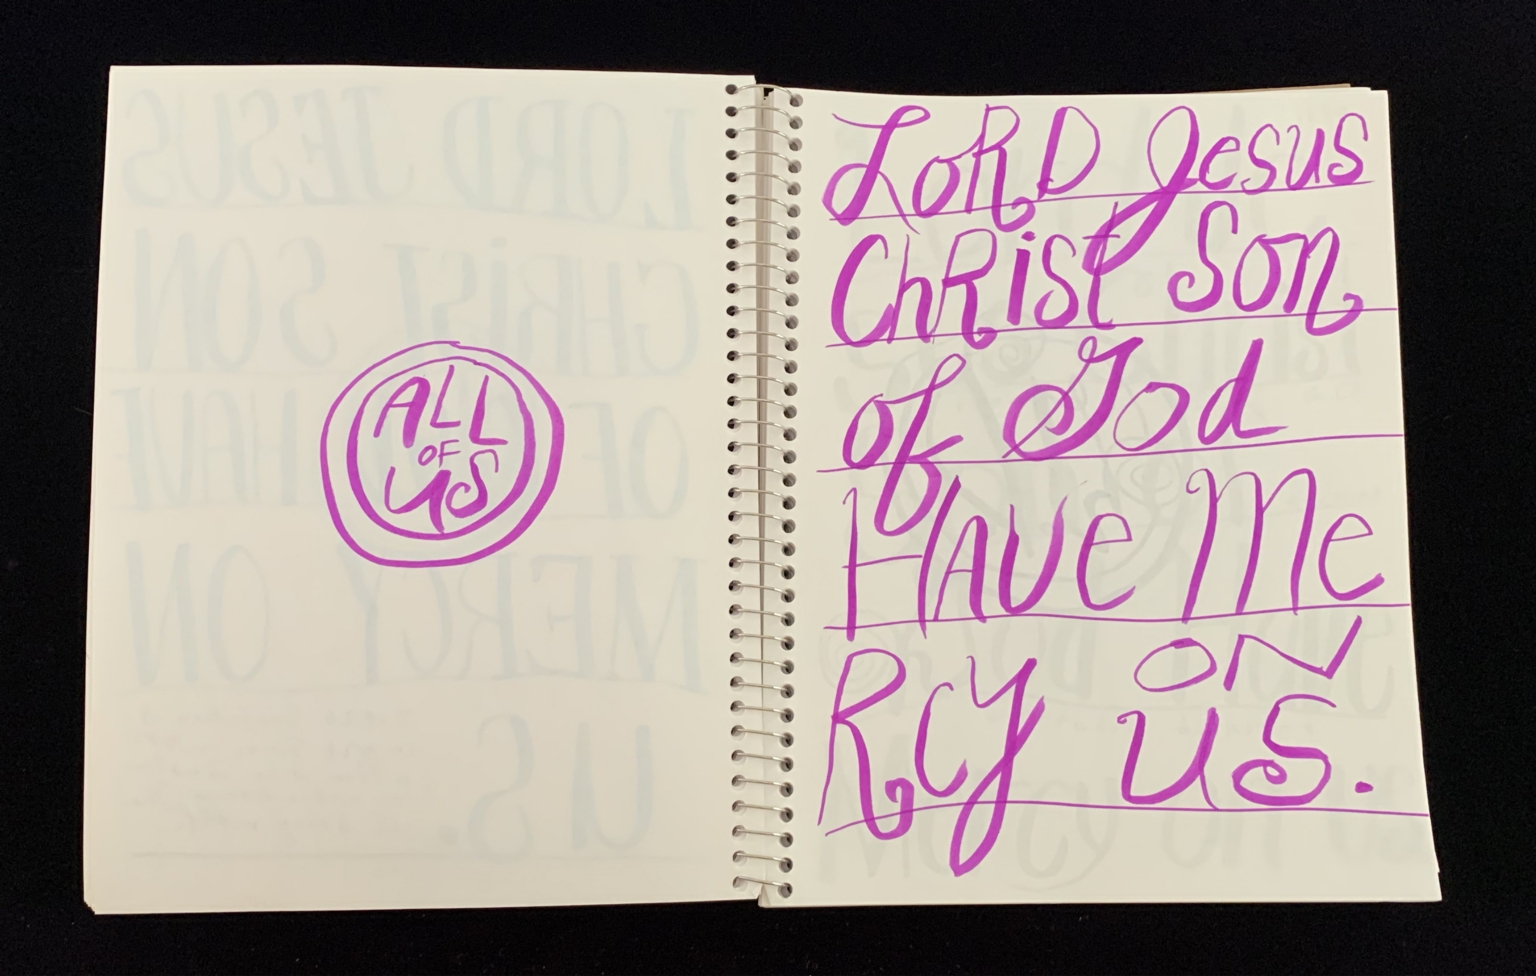 ALL
OF
US
LORD Jesus
ChRist Son
of God
HAVE Me
RCY ON
US.